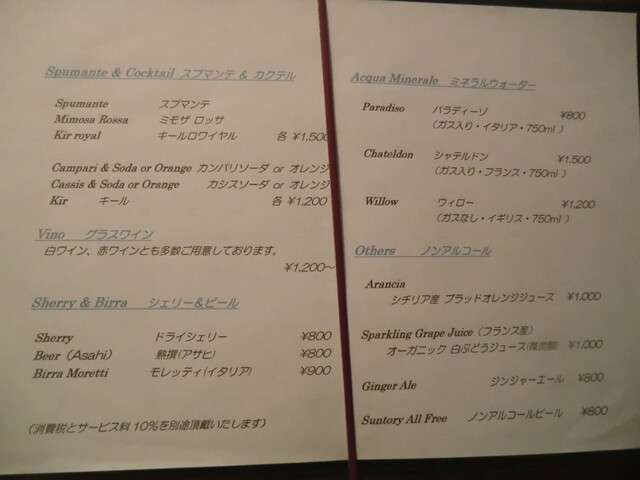 Spumante & Cocktail スプマンテ & カクテル
Spumante スプマンテ
Mimosa Rossa ミモザ ロッサ
Kir royal キールロワイヤル 各 ¥1,500
Campari & Soda or Orange カンパリソーダ or オレンジ
Cassis & Soda or Orange カシスソーダ or オレンジ
Kir キール 各 ¥1,200
Vino グラスワイン
白ワイン、赤ワインとも多数ご用意しております。
¥1,200~
Sherry & Birra シェリー&ビール
Sherry ドライシェリー ¥800
Beer (Asahi) 熟撰(アサヒ) ¥800
Birra Moretti モレッティ(イタリア) ¥900
(消費税とサービス料 10%を別途頂戴いたします)
Acqua Minerale ミネラルウォーター
Paradiso パラディーゾ ¥800
(ガス入り・イタリア・750ml )
Chateldon シャテルドン ¥1,500
(ガス入り・フランス・750ml )
Willow ウィロー ¥1,200
(ガスなし・イギリス・750ml )
Others ノンアルコール
Arancia
シチリア産 ブラッドオレンジジュース ¥1,000
Sparkling Grape Juice (フランス産)
オーガニック 白ぶどうジュース(微炭酸) ¥1,000
Ginger Ale ジンジャーエール ¥800
Suntory All Free ノンアルコールビール ¥800